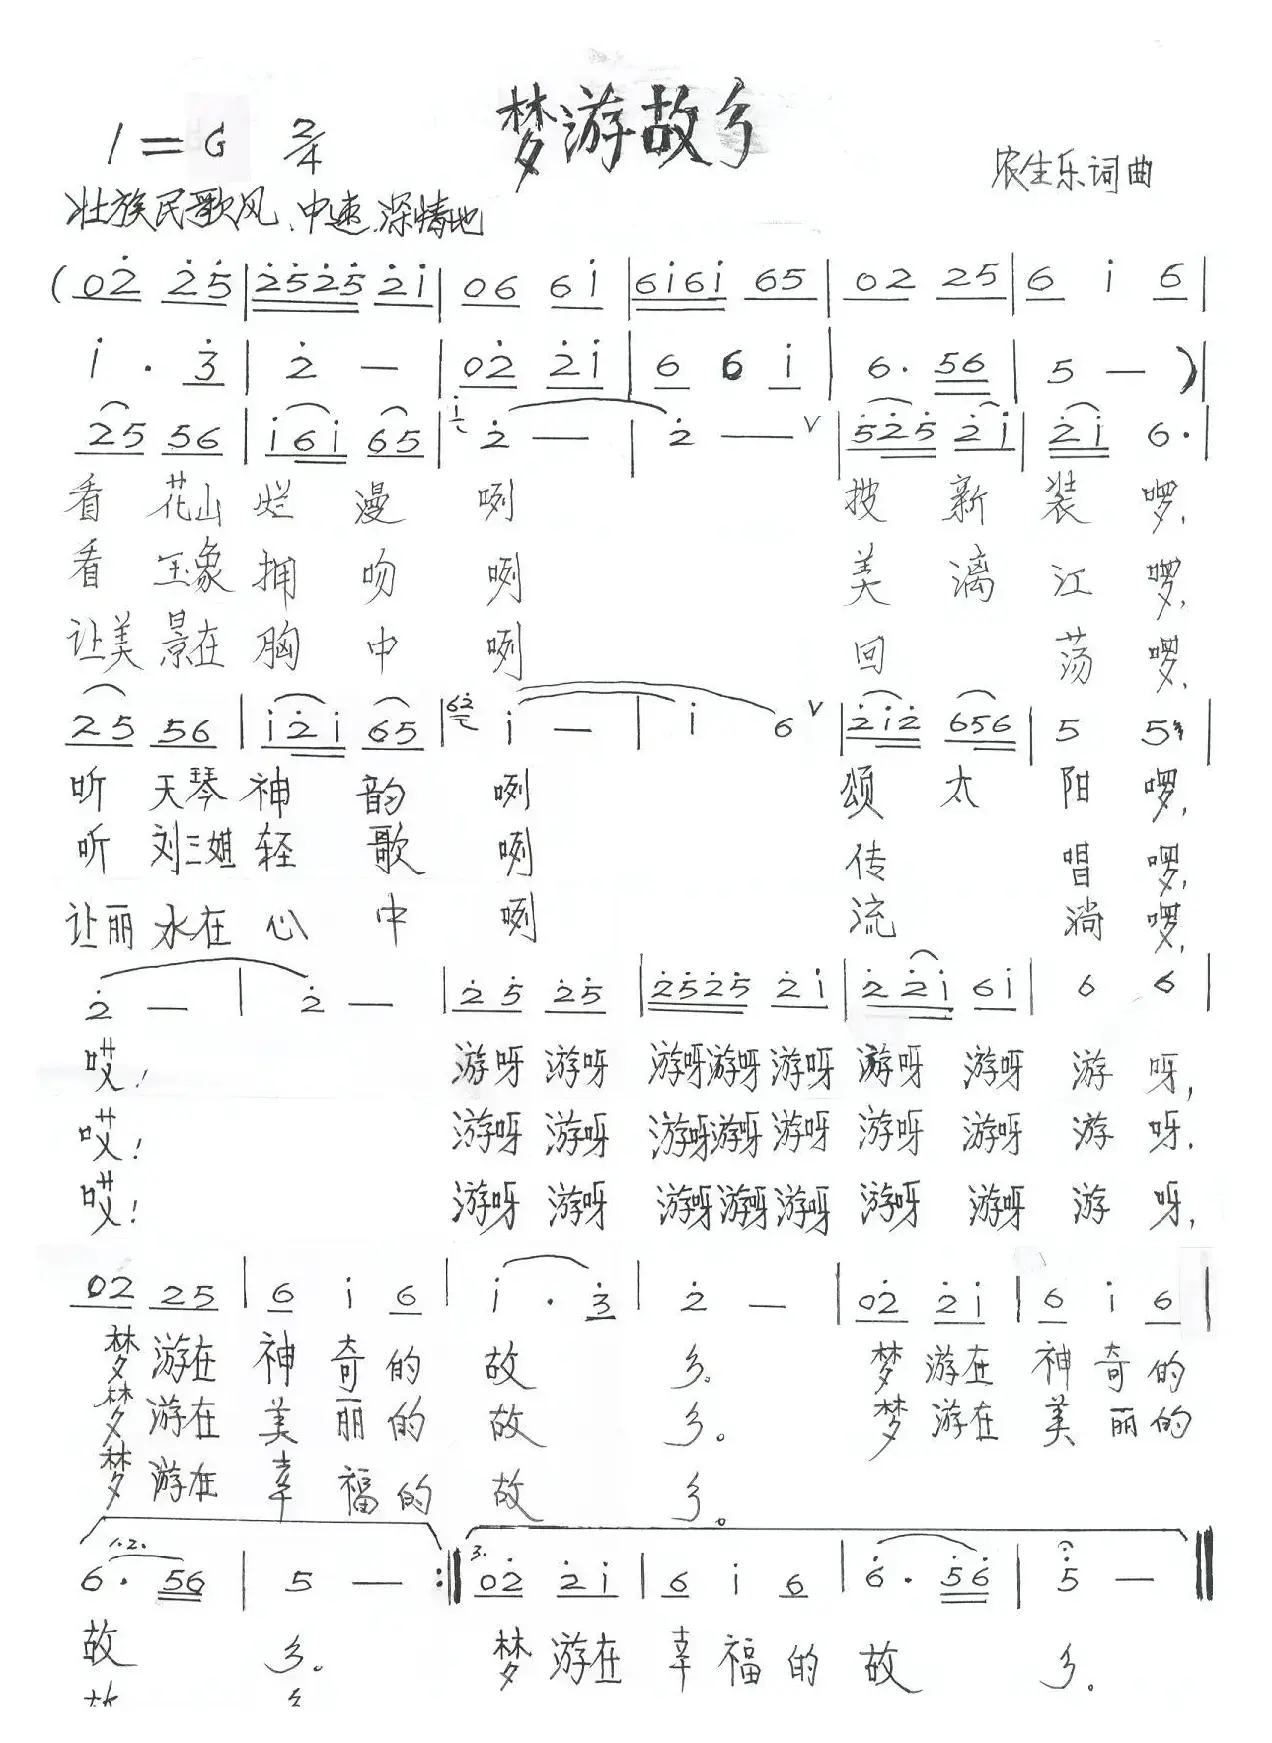 梦游故乡
1=G 2/4
农生乐词曲
壮族民歌风、中速、深情地
(02̇ 2̇5̇ | 2̇5̇2̇5̇ 2̇1̇ | 06 61̇ | 61̇61̇ 65 | 02 25 | 6 1̇ 6 |
1̇ · 3̇ | 2̇ — | 02̇ 2̇1̇ | 6 6 1̇ | 6· 56 | 5 — )|
25 56 | 1̇61̇ 65 | 1̇ 2̇ — | 2̇ — V | 5̇2̇5̇ 2̇1̇ | 2̇1̇ 6· |
看 花山 烂 漫 咧 披 新 装 啰,
看 玉象 拥 吻 咧 美 漓 江 啰,
让美 景在 胸 中 咧 回 荡 啰,
25 56 | 1̇2̇1̇ 65 | 62̇ 1̇ — | 1̇ 6 V | 2̇1̇2̇ 656 | 5 5 |
听 天琴 神 韵 咧 颂 太 阳 啰,
听 刘三姐 轻 歌 咧 传 唱 啰,
让丽 水在 心 中 咧 流 淌 啰,
2̇ — | 2̇ — | 2̇5̇ 2̇5̇ | 2̇5̇2̇5̇ 2̇1̇ | 2̇2̇1̇ 61̇ | 6 6 |
哎! 游呀 游呀 游呀游呀 游呀 游呀 游呀 游 呀,
哎! 游呀 游呀 游呀游呀 游呀 游呀 游呀 游 呀,
哎! 游呀 游呀 游呀游呀 游呀 游呀 游呀 游 呀,
02 25 | 6 1̇ 6 | 1̇ · 3̇ | 2̇ — | 02̇ 2̇1̇ | 6 1̇ 6 |
梦 游在 神 奇的 故 乡。 梦 游在 神 奇的
梦 游在 美 丽的 故 乡。 梦 游在 美 丽的
梦 游在 幸 福的 故 乡。
1.2.
3.
6· 56 | 5 — :‖ 02̇ 2̇1̇ | 6 1̇ 6 | 6̇· 5̇6̇ | 5̇ — ‖
故 乡。 梦 游在 幸 福 的 故 乡。